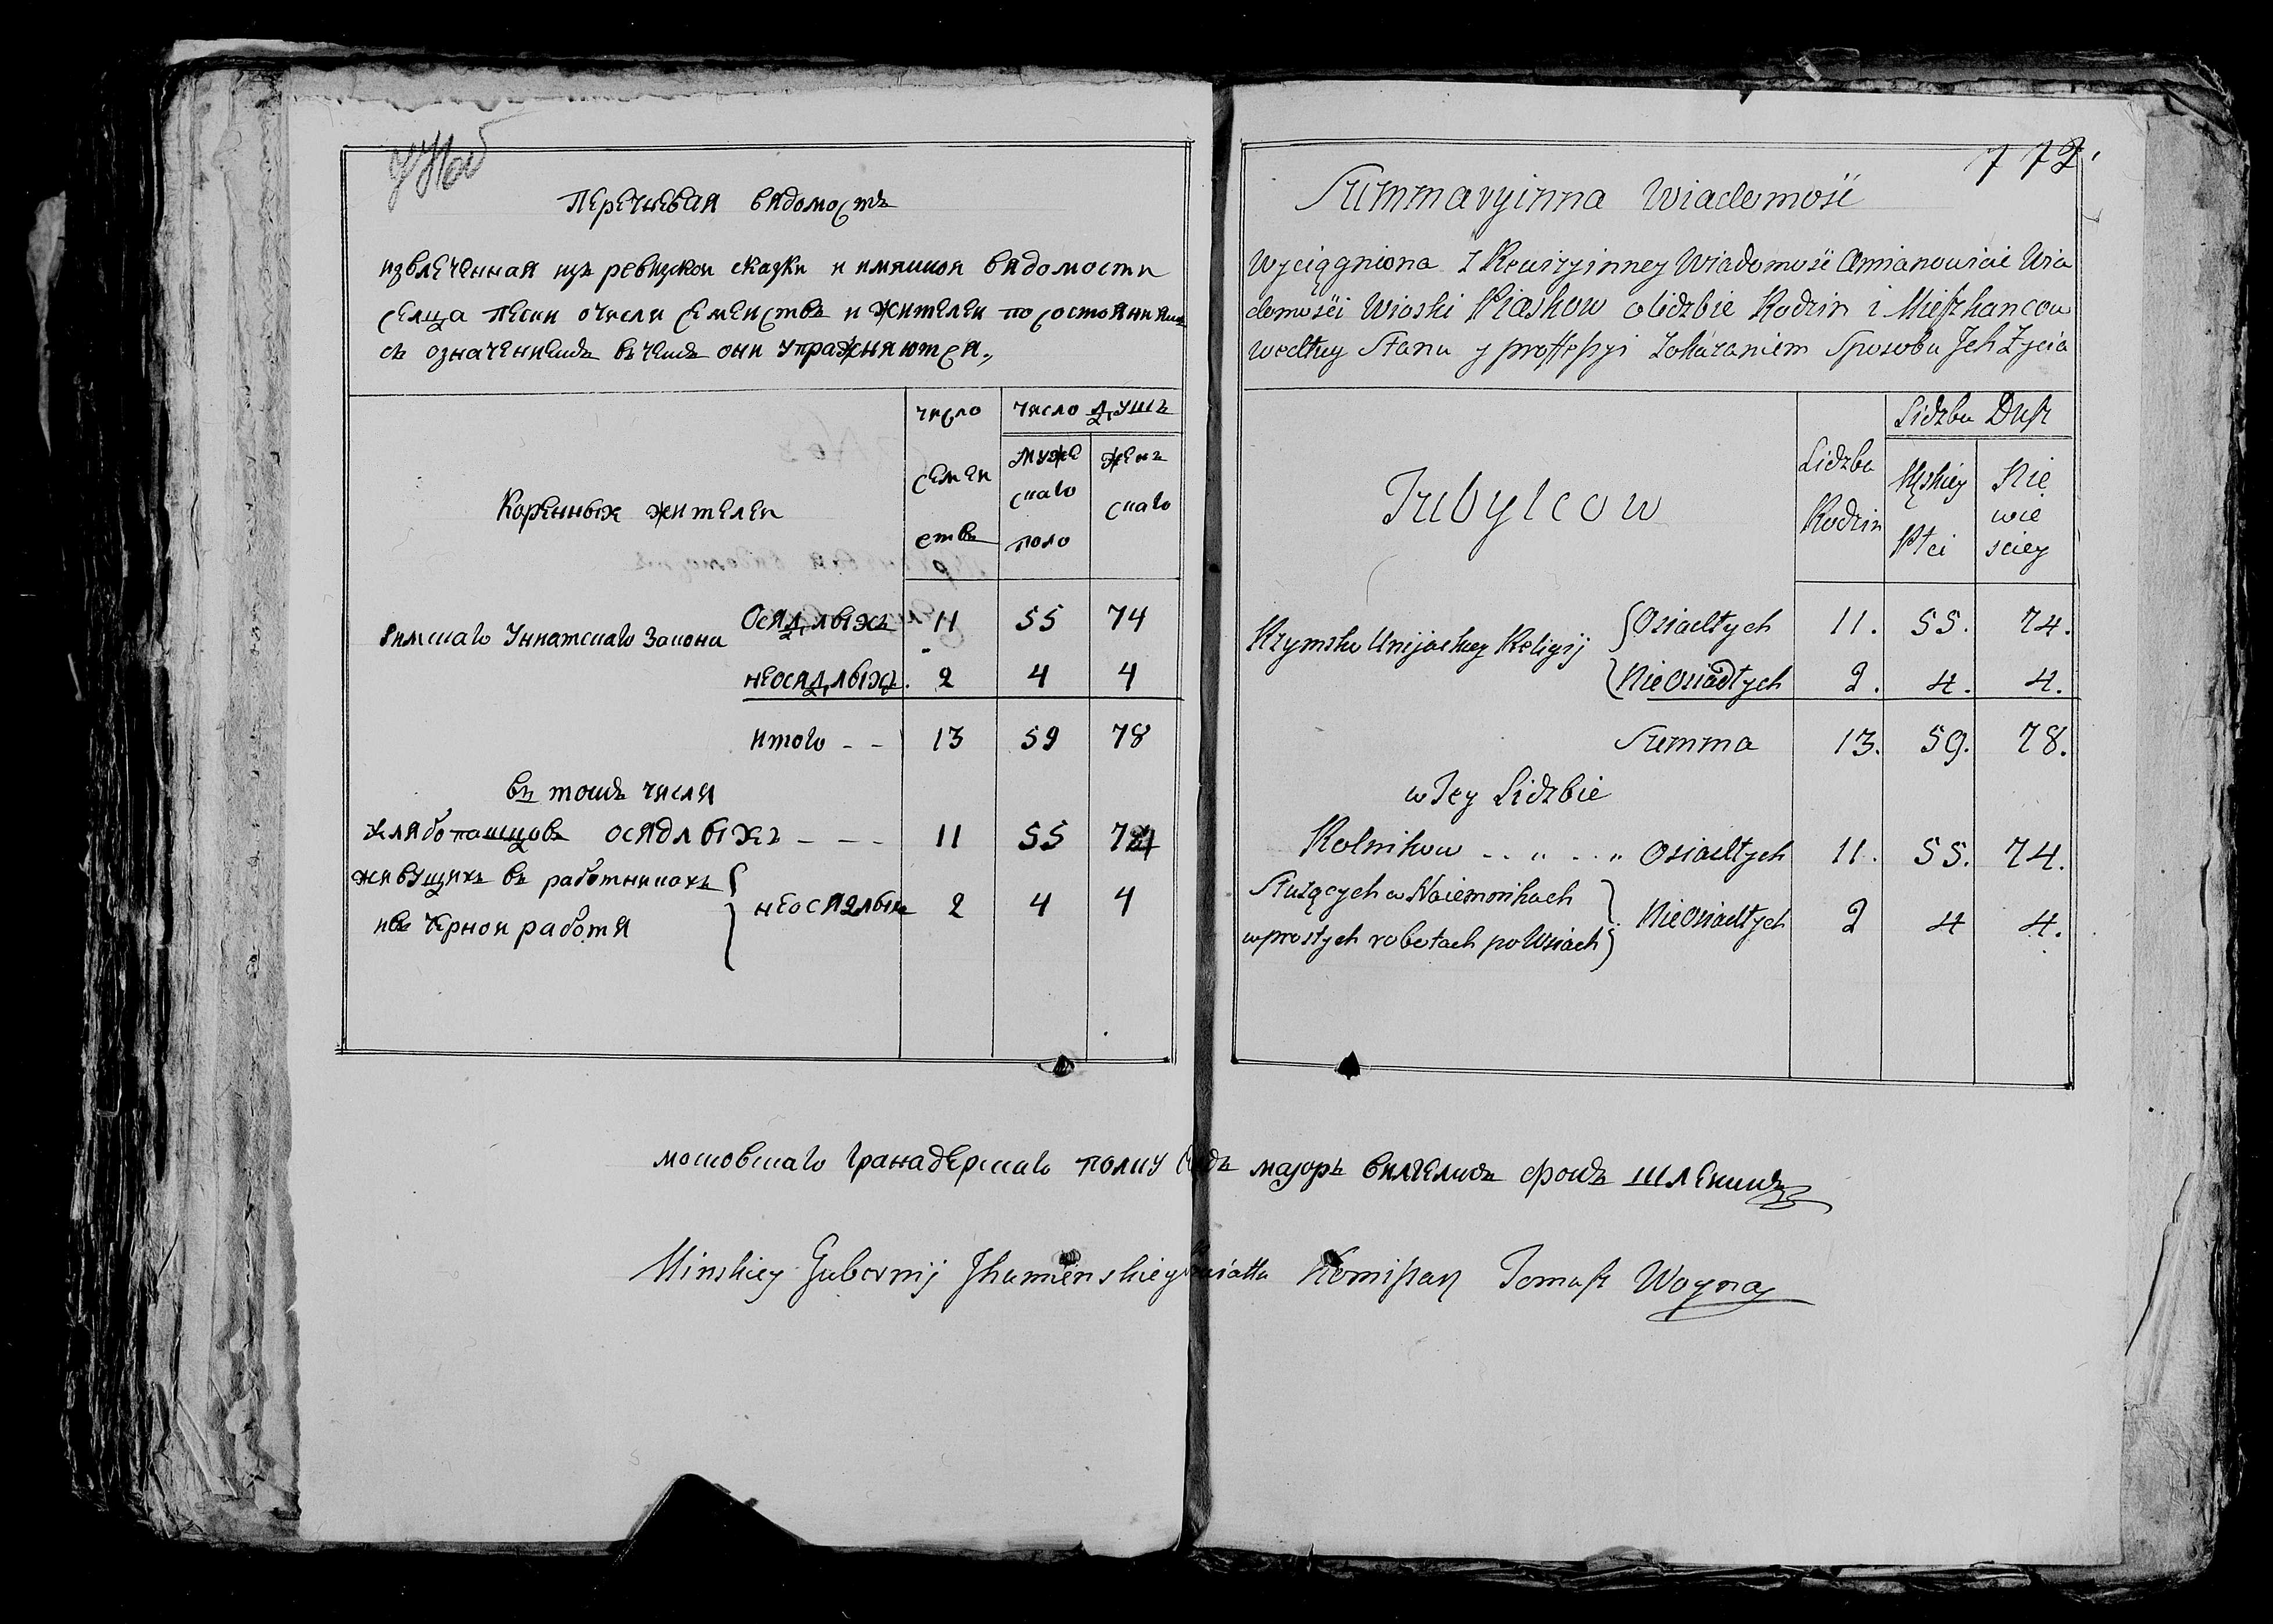 Перечневая вѣдомость
извлеченная изъ ревизкои сказки и имяннои вѣдомости
селца Пески о числѣ семеиствъ и жителеи по состояниямъ
съ означениемъ въ чемъ они упражняютси„
число
семеи
ствъ
число душъ
муже
скаго
полу
женъ
скаго
Коренныхъ жителеи
Римскаго Униатскаго Закона
осѣдлыхъ 11 55 74
неосѣдлыхъ. 2 4 4
итого - - 13 59 78
въ томъ числѣ
хлѣбопашцовъ осѣдлыхъ - - - 11 55 74
живущихъ въ работникахъ
и въ чернои работѣ
неосѣдлыхъ 2 4 4
772
Summaryinna Wiadomość
Wyciągniona z Rewizyinney Wiadomości Amianowicie Wia
domości Wioski Piaskow o lidzbie Rodzin i Mieszkancow
wedłuy Stanu y proffessyi zokazaniem Sposobu Jch Życia
Tubylcow
Lidzba
Rodzin
Lidzba Dusz
Męskiey
Płci
Nie
wie
sciey
Rzymsko Unijackiey Religij
Osiadłych 11. 55. 74.
Nieosiadłych 2. 4. 4.
Summa 13. 59. 78.
w Tey Lidzbie
Rolnikow - - „ - - „ Osiadłych 11. 55. 74.
Służących w Naiemnikach
w prostych robotach po Wsiach
Nieosiadłych 2 4 4.
московскаго гранадерскаго полку маjоръ вилгелмъ фонъ
Minskiey Gubernij Jhumenskiey Powiatu Komissarz Tomasz Woyna